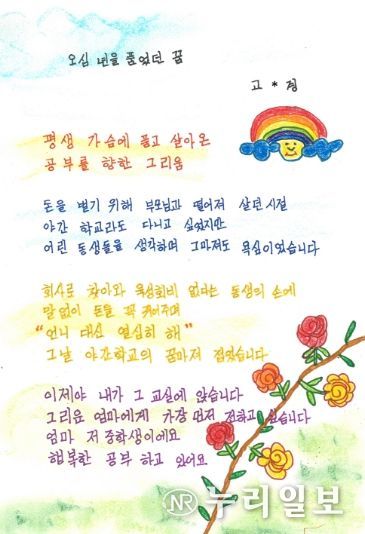 오십 년을 품었던 꿈
고 * 정
평생 가슴에 품고 살아온
공부를 향한 그리움
돈을 벌기 위해 부모님과 떨어져 살던 시절
야간 학교라도 다니고 싶었지만
어린 동생들을 생각하며 그마저도 욕심이었습니다
회사로 찾아와 육성회비 없다는 동생의 손에
말 없이 돈을 꼭 쥐어주며
"언니 대신 열심히 해"
그날 야간학교의 꿈마저 접었습니다
이제야 내가 그 교실에 앉습니다
그리운 엄마에게 가장 먼저 전하고 싶습니다
엄마 저 중학생이에요
행복한 공부 하고 있어요
NR 누리일보